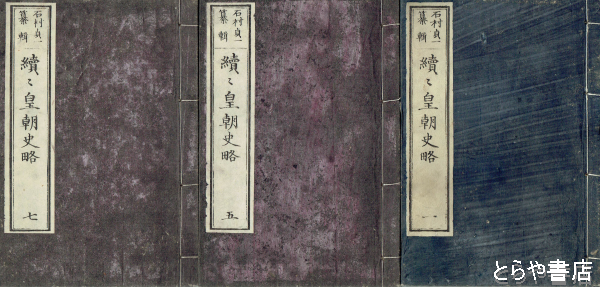 石村貞一
纂輯
續〻皇朝史略
一
石村貞一
纂輯
續〻皇朝史略
五
石村貞一
纂輯
續〻皇朝史略
七
とらや書店